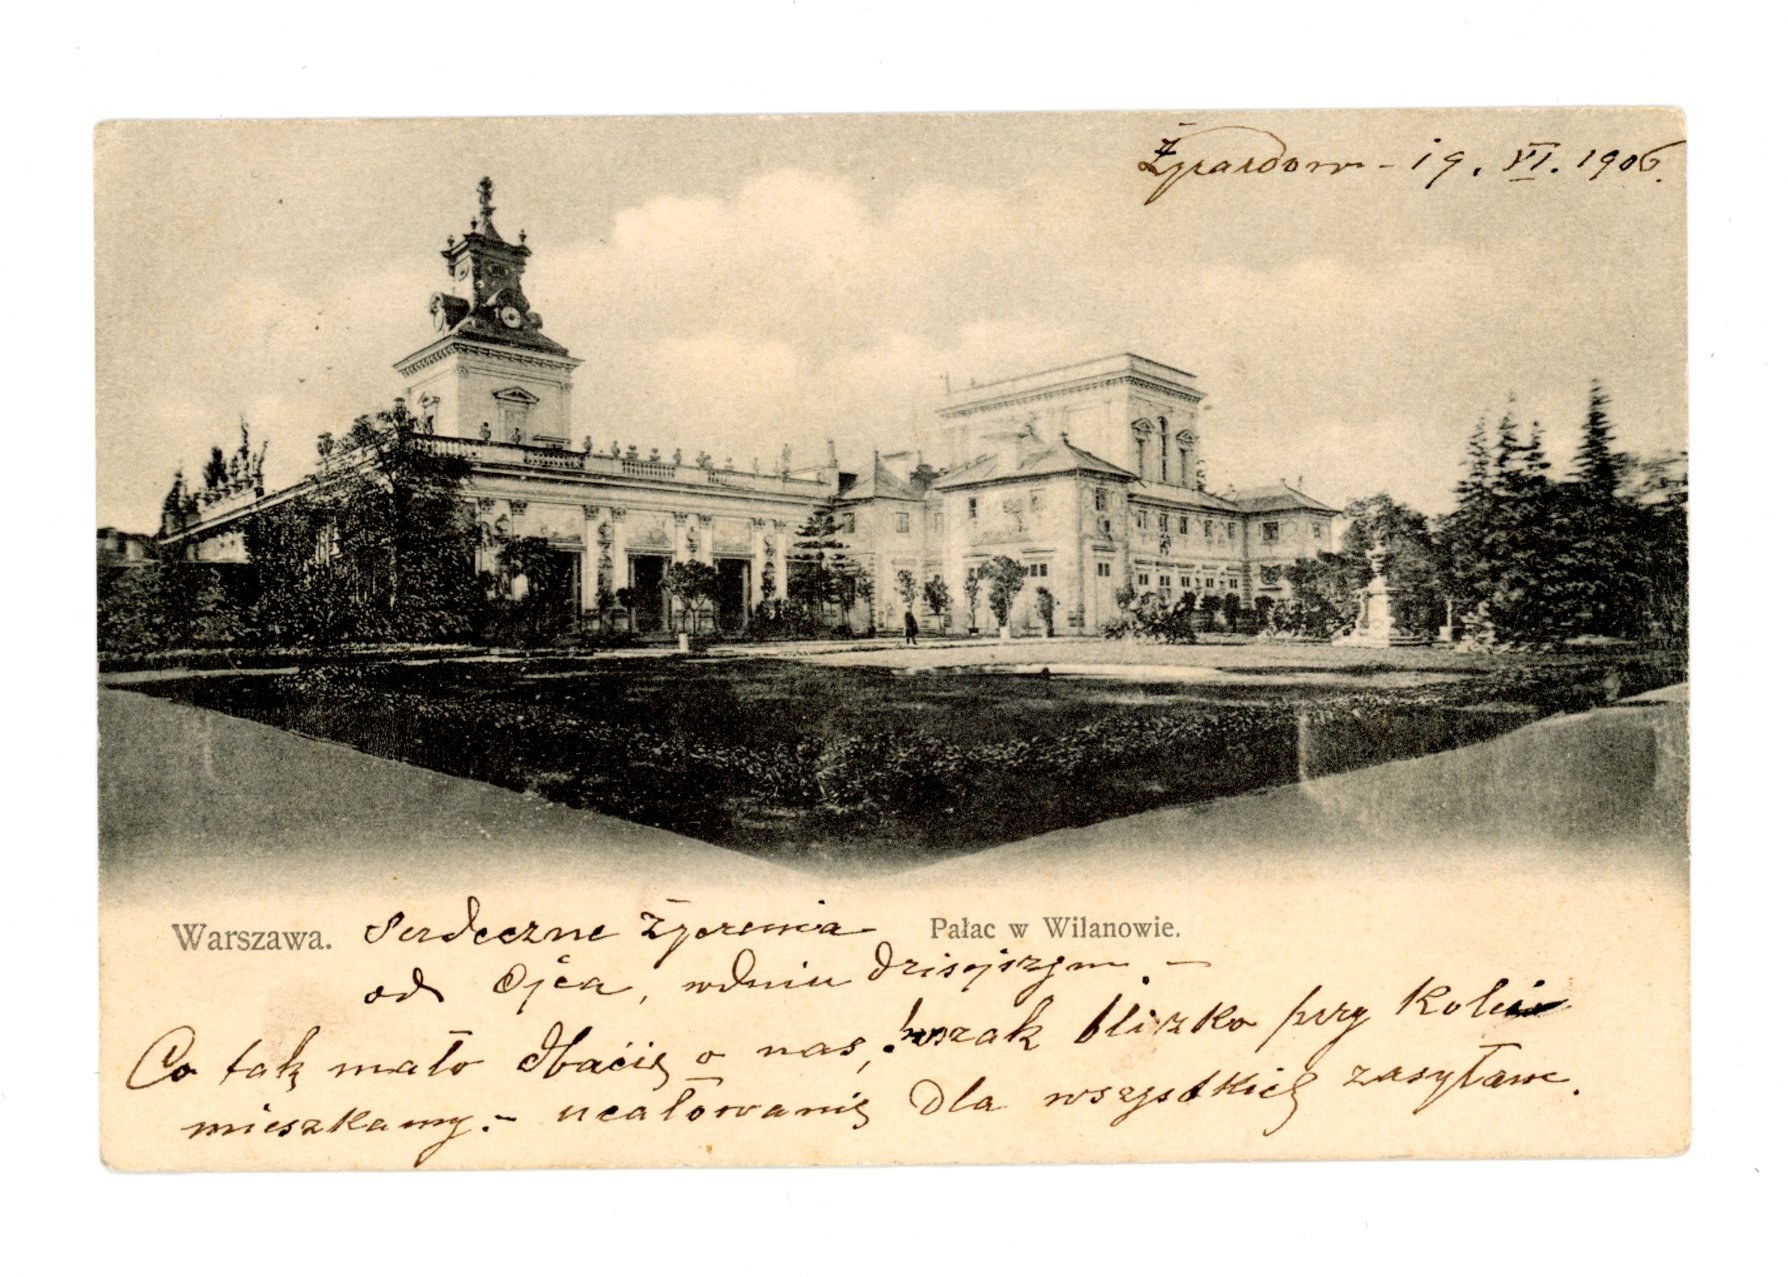 Żyrardow – 19. VI. 1906.
Warszawa. Serdeczne życzenia Pałac w Wilanowie.
od Ojca, w dniu dzisiejszym. –
Co tak mało dbacie o nas, wszak blizko przy Kolei
mieszkamy. – ucałowanie dla wszystkich zasyłam.